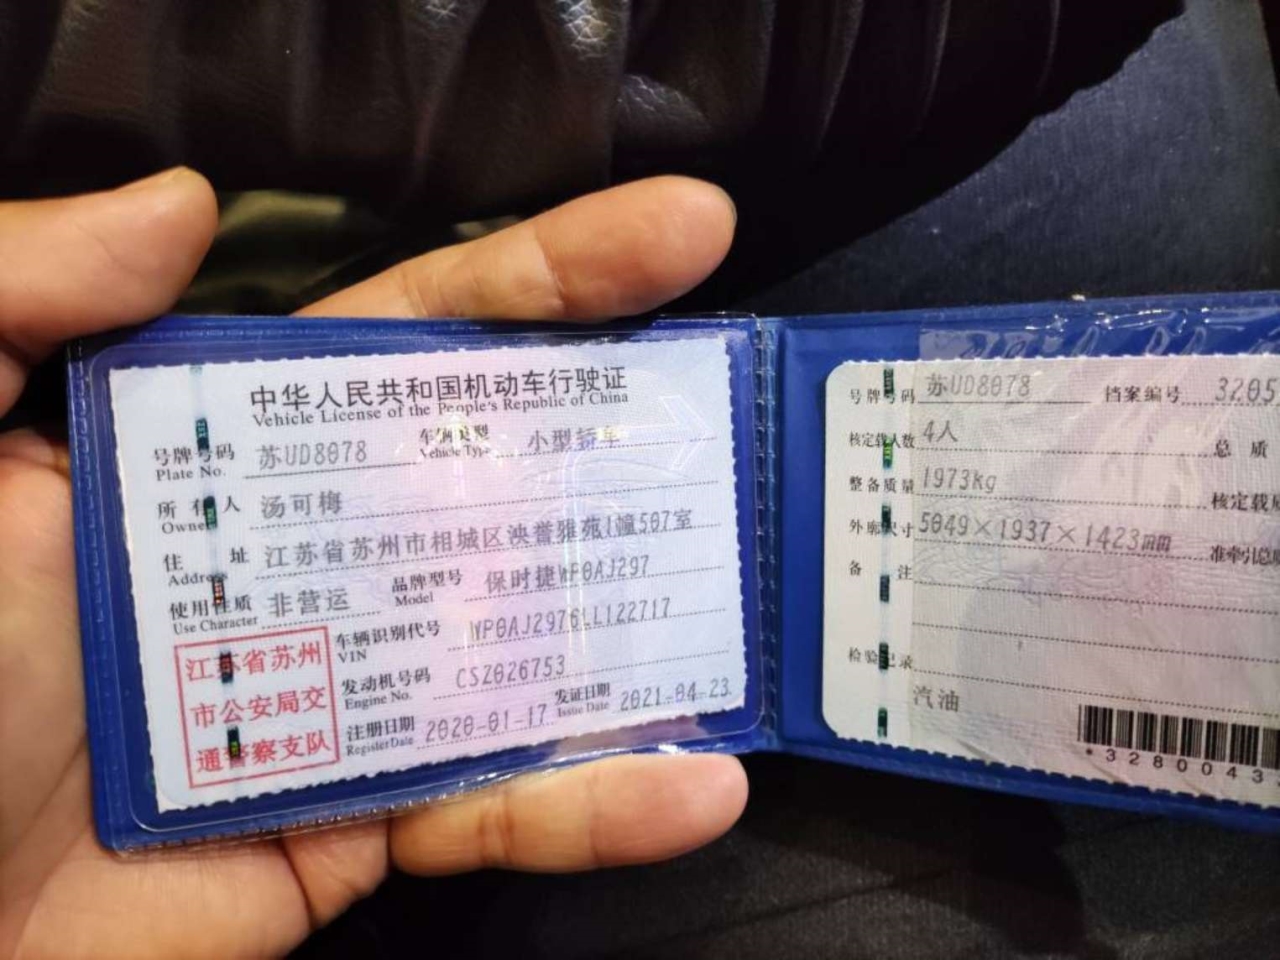 中华人民共和国机动车行驶证
Vehicle License of the People's Republic of China
号牌号码 苏UD8078 车辆类型 小型轿车
Plate No. Vehicle Type
所有人 汤可梅
Owner
住址 江苏省苏州市相城区泱誉雅苑1幢507室
Address
使用性质 非营运 品牌型号 保时捷WP0AJ297
Use Character Model
车辆识别代号 WP0AJ2976LL122717
VIN
发动机号码 CSZ026753
Engine No.
注册日期 2020-01-17 发证日期 2021-04-23
Register Date Issue Date
江苏省苏州
市公安局交
通警察支队
号牌号码 苏UD8078 档案编号 3205
核定载人数 4人 总质
整备质量 1973kg 核定载
外廓尺寸 5049×1937×1423mm 准牵引总
备注
检验记录
汽油
*3280043